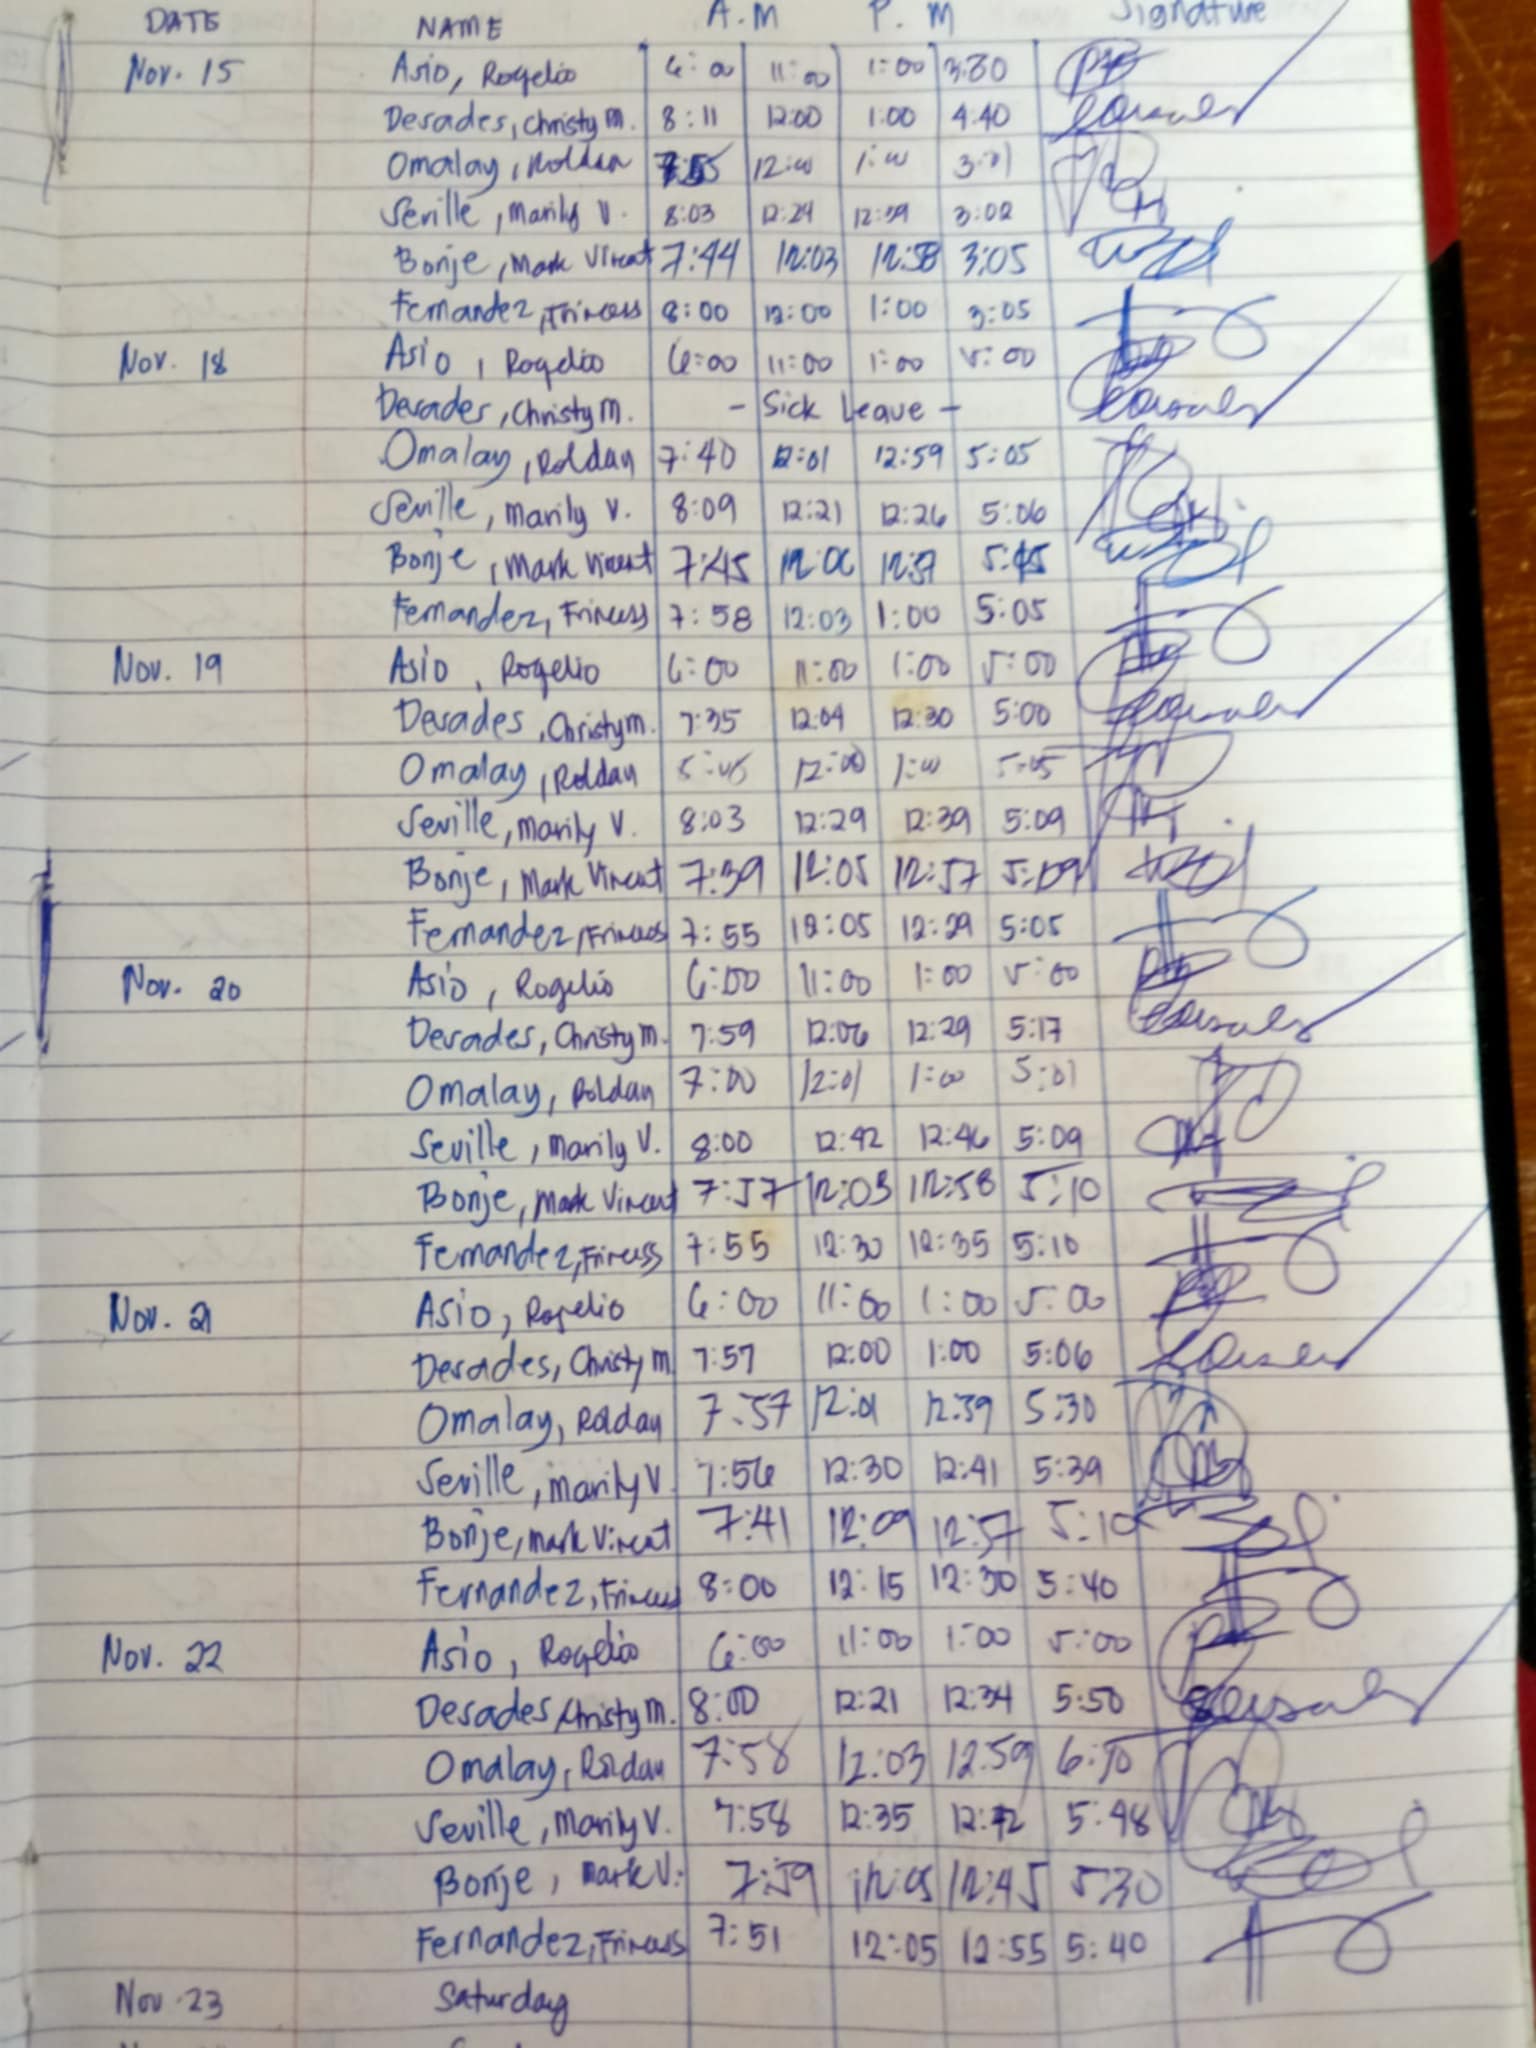 DATE NAME A.M P.M Signature
Nov. 15 Asio, Rogelio 6:00 11:00 1:00 3:30
Desades, Christy M. 8:11 12:00 1:00 4:40
Omalay, Roldan 12:00 1:00 3:01
Seville, Marily V. 8:03 12:24 12:39 3:02
Bonje, Mark Vincent 7:44 12:03 12:58 3:05
Fernandez, Princess 8:00 12:00 1:00 3:05
Nov. 18 Asio, Rogelio 6:00 11:00 1:00 5:00
Desades, Christy M. - Sick Leave -
Omalay, Roldan 7:40 12:01 12:59 5:05
Seville, Marily V. 8:09 12:21 12:26 5:06
Bonje, Mark Vincent 7:45 12:06 12:57
Fernandez, Princess 7:58 12:03 1:00 5:05
Nov. 19 Asio, Rogelio 6:00 11:00 1:00 5:00
Desades, Christy M. 7:35 12:04 12:30 5:00
Omalay, Roldan 12:00 1:00 5:05
Seville, Marily V. 8:03 12:29 12:39 5:09
Bonje, Mark Vincent 7:39 12:05 12:57 5:09
Fernandez, Princess 7:55 12:05 12:29 5:05
Nov. 20 Asio, Rogelio 6:00 11:00 1:00 5:00
Desades, Christy M. 7:59 12:06 12:29 5:17
Omalay, Roldan 7:00 12:01 1:00 5:01
Seville, Marily V. 8:00 12:42 12:46 5:09
Bonje, Mark Vincent 7:57 12:03 12:58 5:10
Fernandez, Princess 7:55 12:30 12:35 5:10
Nov. 21 Asio, Rogelio 6:00 11:00 1:00 5:00
Desades, Christy M. 7:57 12:00 1:00 5:06
Omalay, Roldan 7:57 12:01 12:39 5:30
Seville, Marily V. 7:56 12:30 12:41 5:39
Bonje, Mark Vincent 7:41 12:09 12:57 5:10
Fernandez, Princess 8:00 12:15 12:30 5:40
Nov. 22 Asio, Rogelio 6:00 11:00 1:00 5:00
Desades, Christy M. 8:00 12:21 12:34 5:50
Omalay, Roldan 7:58 12:03 12:59
Seville, Marily V. 7:58 12:35 12:42 5:48
Bonje, Mark V. 7:59 12:05 12:45 5:30
Fernandez, Princess 7:51 12:05 12:55 5:40
Nov. 23 Saturday